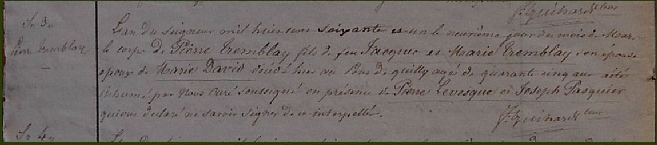 J. Guihard
S. 3
Pierre Tremblay
L'an du Seigneur mil huit cent soixante et un le neuvième jour du mois de Mars
le corps de Pierre Tremblay fils de feu Jacques et Marie Tremblay en
époux de Marie David décédé hier au Bas de quilly agé de quarante cinq ans a été
inhumé par Nous curé soussigné en présence de Pierre Levesque et Joseph Pasquier
qui ont déclaré ne savoir signer de ce interpellé.
J. Guihard